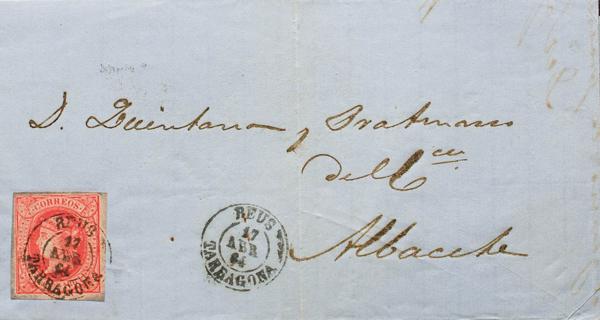 D. Quintana y Pratmarso
del Cco
Albacete
CORREOS
REUS
17
ABR
64
TARRAGONA
REUS
17
ABR
64
TARRAGONA